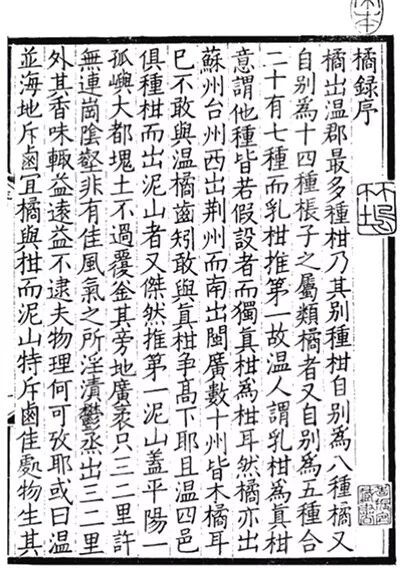 橘録序
橘出温郡最多種柑乃其别種柑自别爲八種橘又
自别爲十四種橙子之屬類橘者又自别爲五種合
二十有七種而乳柑推第一故温人謂乳柑爲真柑
意謂他種皆若假設者而獨真柑爲柑耳然橘亦出
蘇州台州西出荆州而南出閩廣數十州皆木橘耳
已不敢與温橘齒矧敢與真柑争高下耶且温四邑
俱種柑而出泥山者又傑然推第一泥山盖平陽一
孤嶼大都塊土不過覆釜其旁地廣袤只三二里許
無連岡陰壑非有佳風氣之所淫漬鬱烝出三二里
外其香味輒益遠益不逮夫物理何可攷耶或曰温
並海地斥鹵宜橘與柑而泥山特斥鹵佳處物生其